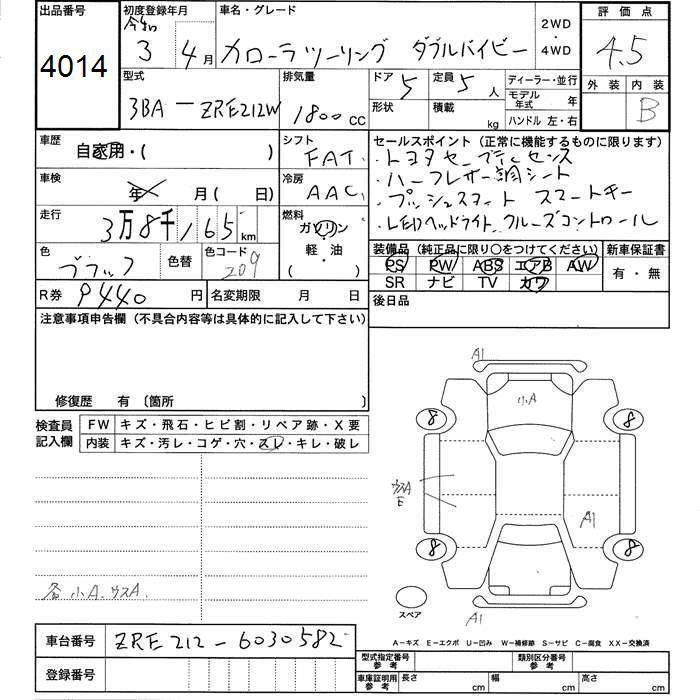 出品番号
4014
初度登録年月
令和
3 4月
車名・グレード
カローラツーリング ダブルバイビー
2WD
・
4WD
評価点
4.5
外装 内装
B
型式
3BA-ZRE212W
排気量
1800 CC
ドア 5
形状
定員 5 人
積載 kg
ディーラー・並行
モデル年式 年
ハンドル 左・右
車歴
自家用・( )
シフト
FAT
車検
年 月(日)
冷房
AAC
走行
3万8千165 km
燃料
ガソリン
軽・油
( )
色
ブラック
色替
色コード
209
R券 9440 円
名変期限 月 日
セールスポイント(正常に機能するものに限ります)
・トヨタセーフティセンス
・ハーフレザー調シート
・プッシュスタート スマートキー
・LEDヘッドライト クルーズコントロール
装備品(純正品に限り○をつけてください)
PS PW ABS エアB AW
SR ナビ TV カワ
新車保証書
有・無
後日品
注意事項申告欄(不具合内容等は具体的に記入して下さい)
修復歴 有〔箇所
検査員
記入欄
FW キズ・飛石・ヒビ割・リペア跡・X要
内装 キズ・汚レ・コゲ・穴・スレ・キレ・破レ
各小A.ウスA.
A1
小A
8
8
ウスA
E
A1
8
8
スペア
A1
A-キズ E-エクボ U-凹み W-補修跡 S-サビ C-腐食 XX-交換済
車台番号 ZRE212-6030582
登録番号
型式指定番号
参考
類別区分番号
参考
車庫証明用
参考
長さ cm 幅 cm 高さ cm